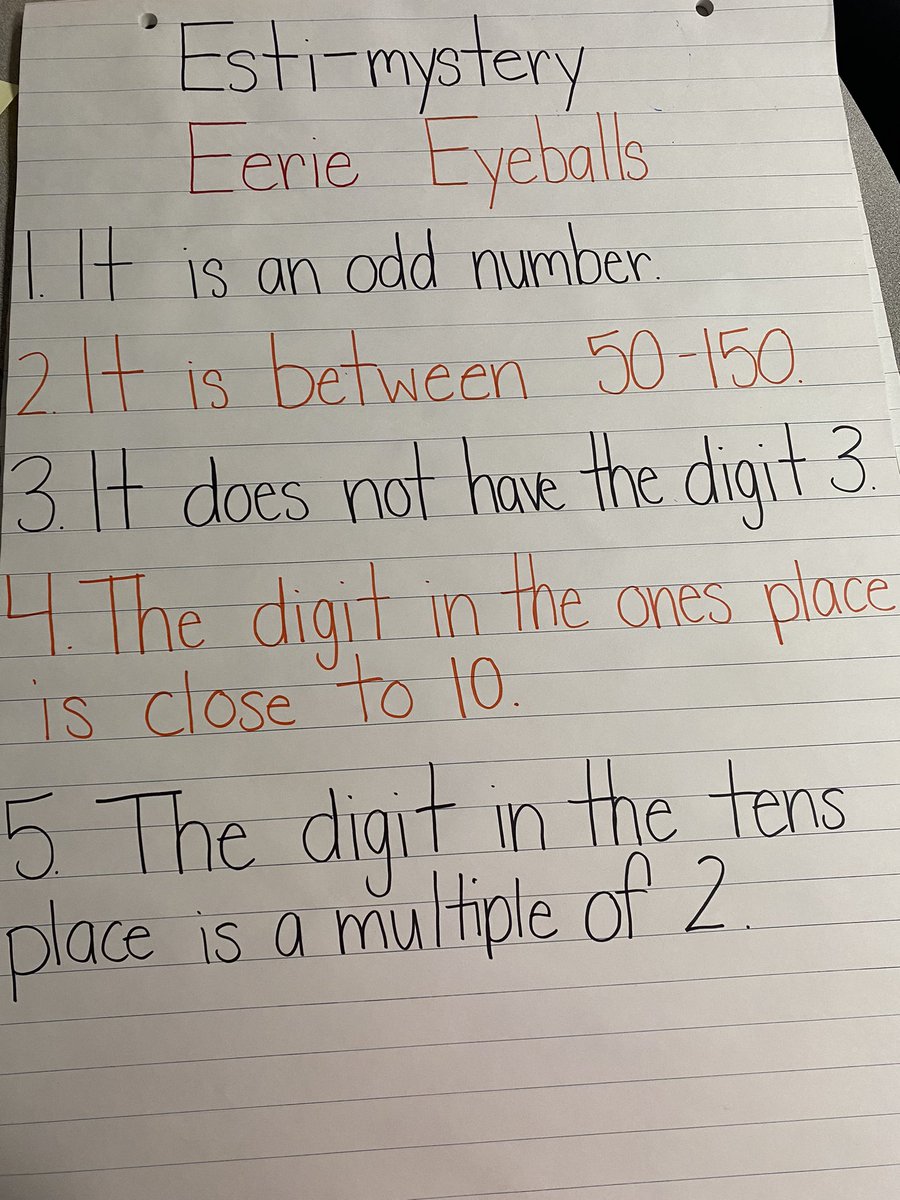 Esti-mystery
Eerie Eyeballs
1. It is an odd number.
2. It is between 50-150.
3. It does not have the digit 3.
4. The digit in the ones place
is close to 10.
5. The digit in the tens
place is a multiple of 2.